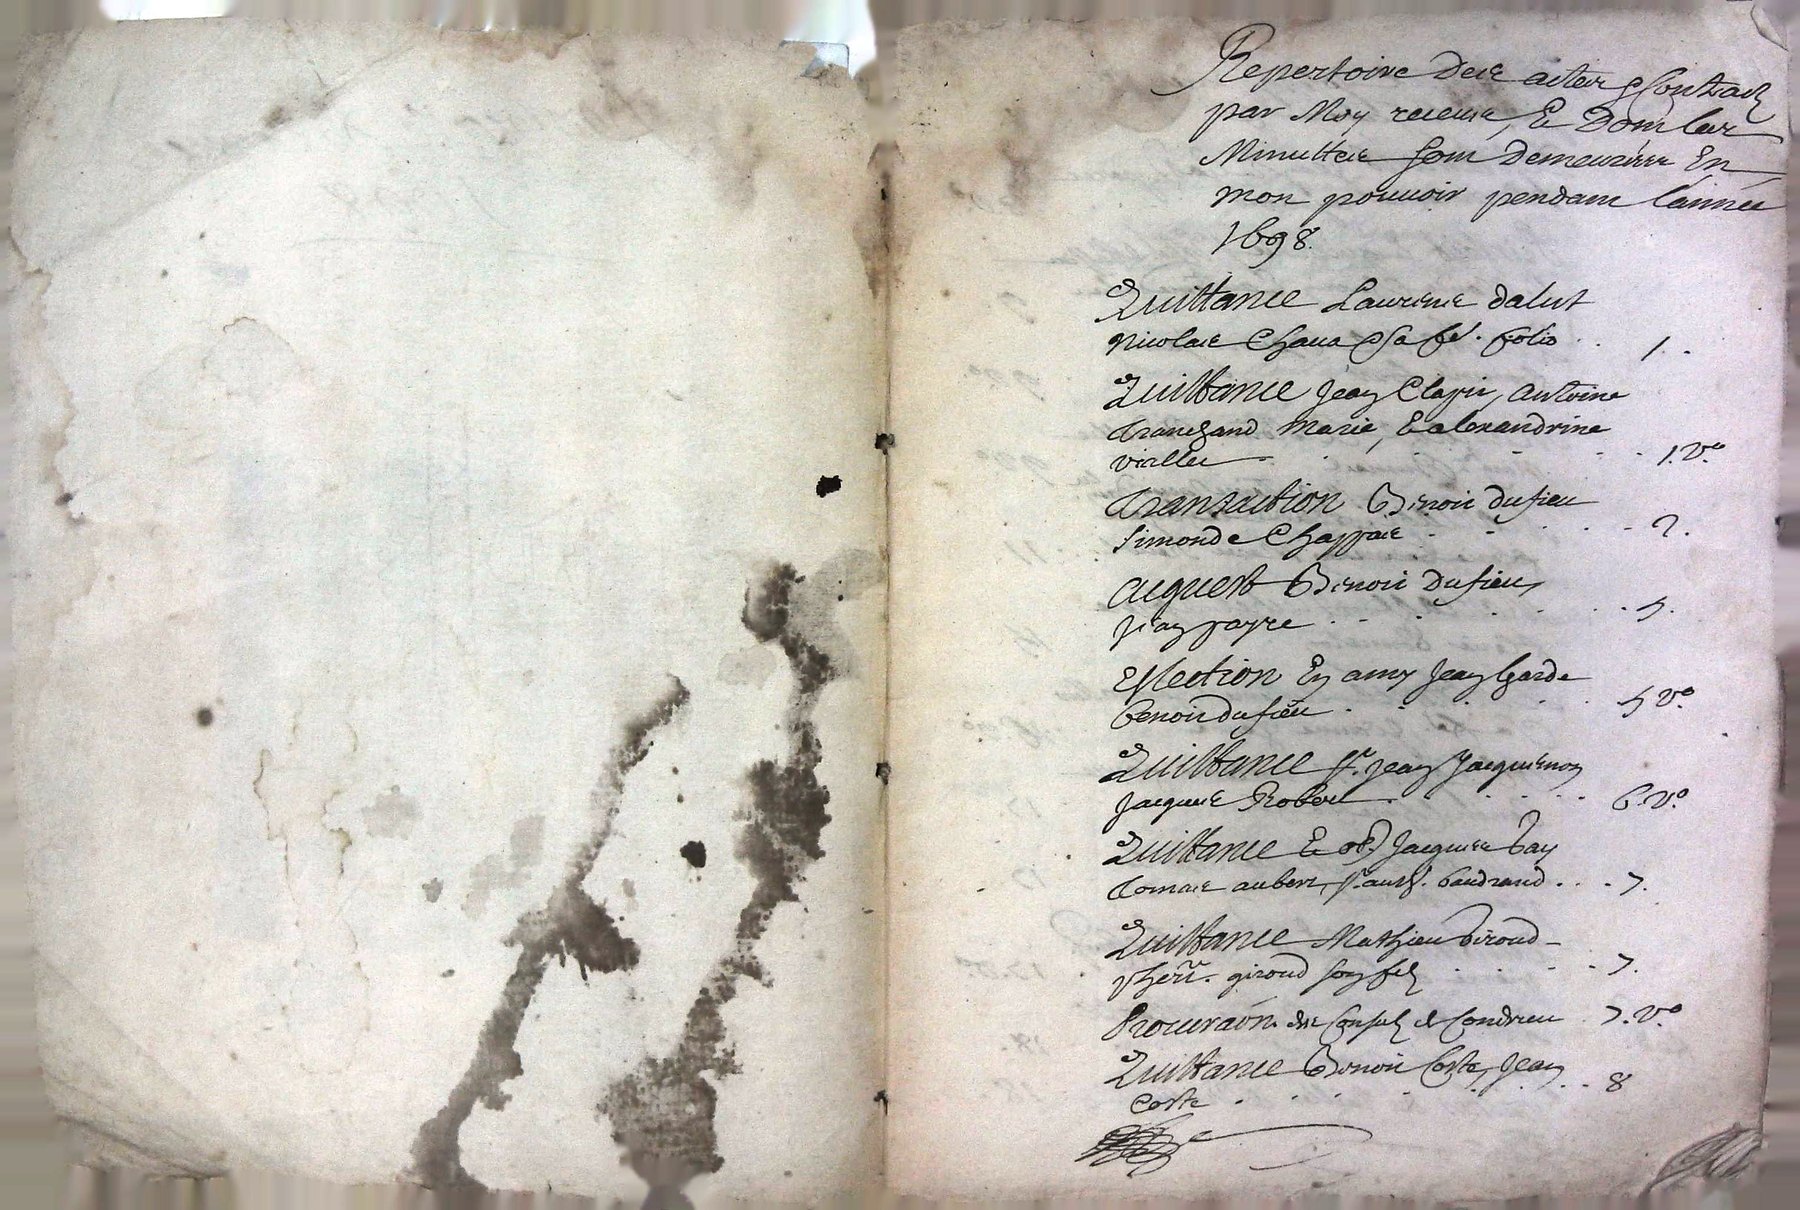 Repertoire des actes & Contractz
par Moy receus, Et Dont les
Minuttes sont demeurées En
mon pouvoir pendant l'année
1698.
Quittance Laurens dalut
Nicolas Chaua & sa fe. folio . . 1 .
Quittance Jean Clapier, Antoine
Tranchand Marie, & alexandrine
viallet . . . . 1. Vo
Transaction Benoit dufieu
Simonde Chappas . . . 2.
Acquest Benoit Dufieu,
Jean payre . . . . 5.
Eslection En amy Jean Garde
Benoit dufieu . . . . 5 Vo
Quittance Sr. Jean Jacquemon
Jacques Robert . . . . 6. Vo
Quittance Jacques bay
Tomas aubert, baudrand . . . 7.
Quittance Mathieu Giroud
giroud son filz . . . . 7.
Procuraon. des Consulz de Condrieu . 7. Vo
Quittance Benoit Coste, Jean
Coste . . . . 8